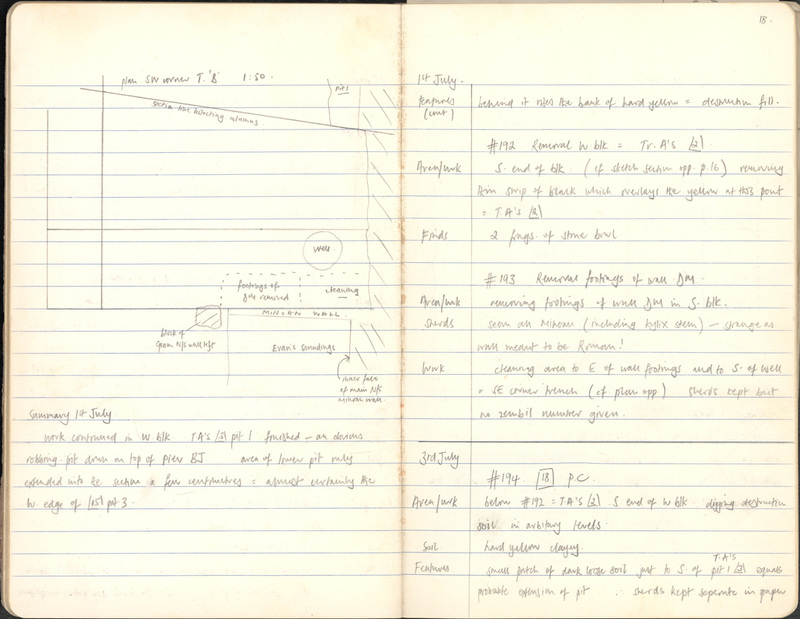 plan SW corner T.'B 1:50.
pits
section line bisecting columns.
well.
footings of
DM removed
cleaning
MINOAN WALL.
block of
Evan's soundings
inner face
of main N/S
minoan wall.
Summary 1st July
work continued in W blk TA's /2\ pit 1 finished – an obvious
robbing pit down on top of pier BJ area of lower pit
extended into section a few centimetres = almost certainly the
W. edge of pit 3.
18.
1st July.
Features
(cont)
behind it rises the bank of hard yellow = destruction fill.
#192 Removal W blk = Tr. A's /2\
Area/wrk
S. end of blk (cf sketch section opp. p.16) removing
thin strip of black which overlays the yellow at this point
= T.A's /2\
Finds
2 frags. of stone bowl
#193 Removal footings of wall DM.
Area/wrk
removing footings of wall DM in S. blk.
Sherds
seem all Minoan (including kylix stem) – strange as
wall meant to be Roman!
Work
cleaning area to E of wall footings and to S. of well
= SE corner trench (cf plan opp) sherds kept but
no zembil number given.
3rd July
#194 18 P.C
Area/wrk
below #192 = TA's /2\ S end of W blk digging destruction
soil in arbitary levels.
Soil
hard yellow clayey.
Features
small patch of dark loose soil just to S. of T.A's pit 1 /2\ equals
probable extension of pit ∴ sherds kept seperate in paper